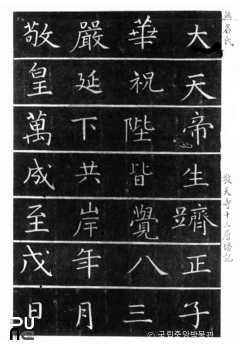 無名氏
敬天寺十三層塔記
大華嚴敬
天祝延皇
帝陛下萬
生皆共成
躋覺岸至
正八年戊
子三月日
© 국립중앙박물관